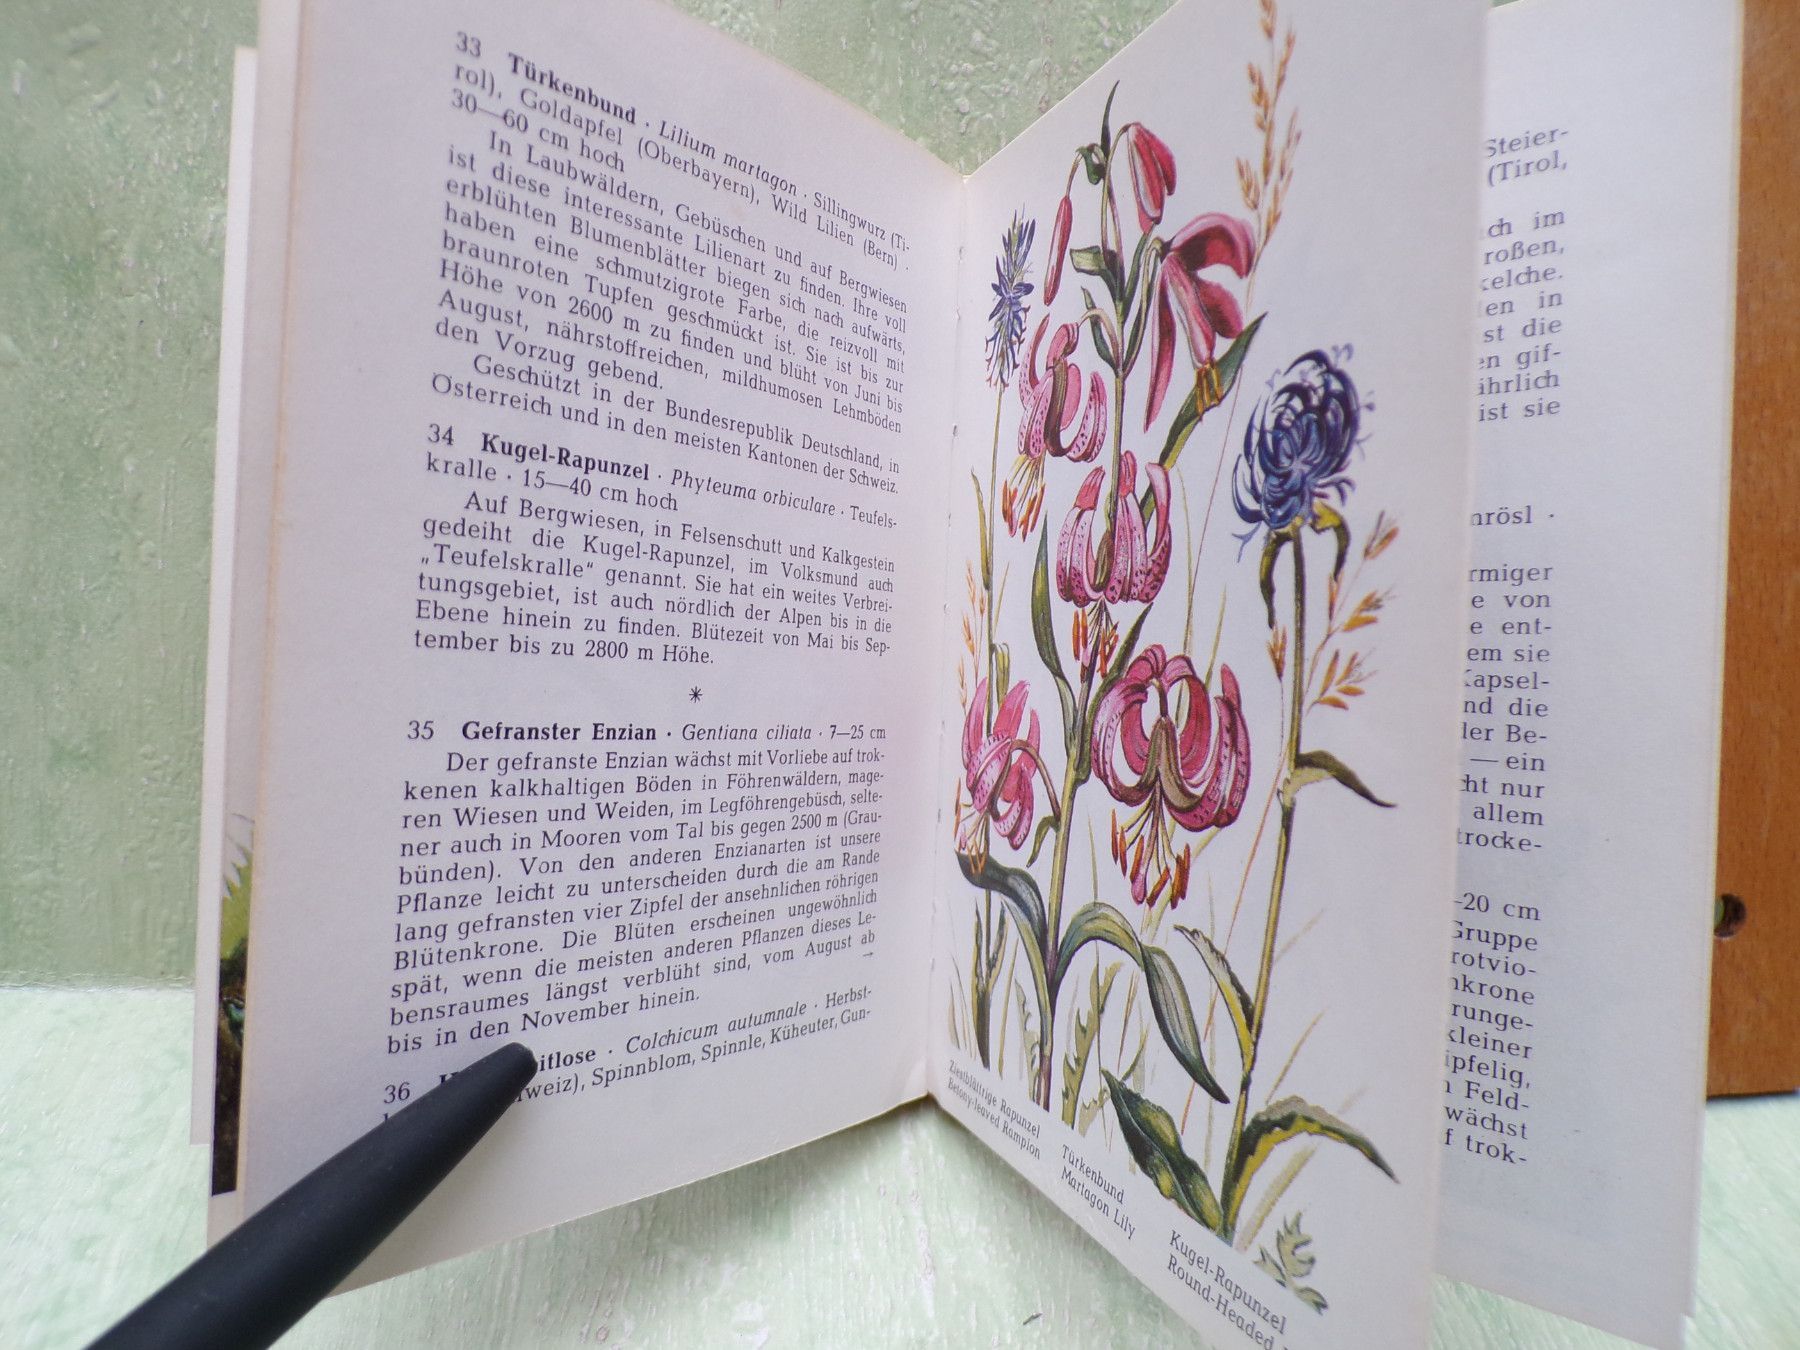 33 Türkenbund · Lilium martagon · Sillingwurz (Ti-
rol), Goldapfel (Oberbayern), Wild Lilien (Bern) ·
30—60 cm hoch
In Laubwäldern, Gebüschen und auf Bergwiesen
ist diese interessante Lilienart zu finden. Ihre voll
erblühten Blumenblätter biegen sich nach aufwärts,
haben eine schmutzigrote Farbe, die reizvoll mit
braunroten Tupfen geschmückt ist. Sie ist bis zur
Höhe von 2600 m zu finden und blüht von Juni bis
August, nährstoffreichen, mildhumosen Lehmböden
den Vorzug gebend.
Geschützt in der Bundesrepublik Deutschland, in
Österreich und in den meisten Kantonen der Schweiz.
34 Kugel-Rapunzel · Phyteuma orbiculare · Teufels-
kralle · 15—40 cm hoch
Auf Bergwiesen, in Felsenschutt und Kalkgestein
gedeiht die Kugel-Rapunzel, im Volksmund auch
„Teufelskralle“ genannt. Sie hat ein weites Verbrei-
tungsgebiet, ist auch nördlich der Alpen bis in die
Ebene hinein zu finden. Blütezeit von Mai bis Sep-
tember bis zu 2800 m Höhe.
*
35 Gefranster Enzian · Gentiana ciliata · 7—25 cm
Der gefranste Enzian wächst mit Vorliebe auf trok-
kenen kalkhaltigen Böden in Föhrenwäldern, mage-
ren Wiesen und Weiden, im Legföhrengebüsch, selte-
ner auch in Mooren vom Tal bis gegen 2500 m (Grau-
bünden). Von den anderen Enzianarten ist unsere
Pflanze leicht zu unterscheiden durch die am Rande
lang gefransten vier Zipfel der ansehnlichen röhrigen
Blütenkrone. Die Blüten erscheinen ungewöhnlich
spät, wenn die meisten anderen Pflanzen dieses Le-
bensraumes längst verblüht sind, vom August ab
bis in den November hinein. →
36 itlose · Colchicum autumnale · Herbst-
weiz), Spinnblom, Spinnle, Küheuter, Gun-
Ziestblättrige Rapunzel
Betony-leaved Rampion
Türkenbund
Martagon Lily
Kugel-Rapunzel
Round-Headed
Steier-
(Tirol,
ch im
roßen,
kelche.
en in
st die
en gif-
ährlich
ist sie
nrösl ·
rmiger
e von
e ent-
em sie
Kapsel-
nd die
der Be-
— ein
ht nur
allem
trocke-
—20 cm
Gruppe
rotvio-
nkrone
runge-
kleiner
ipfelig,
n Feld-
wächst
f trok-